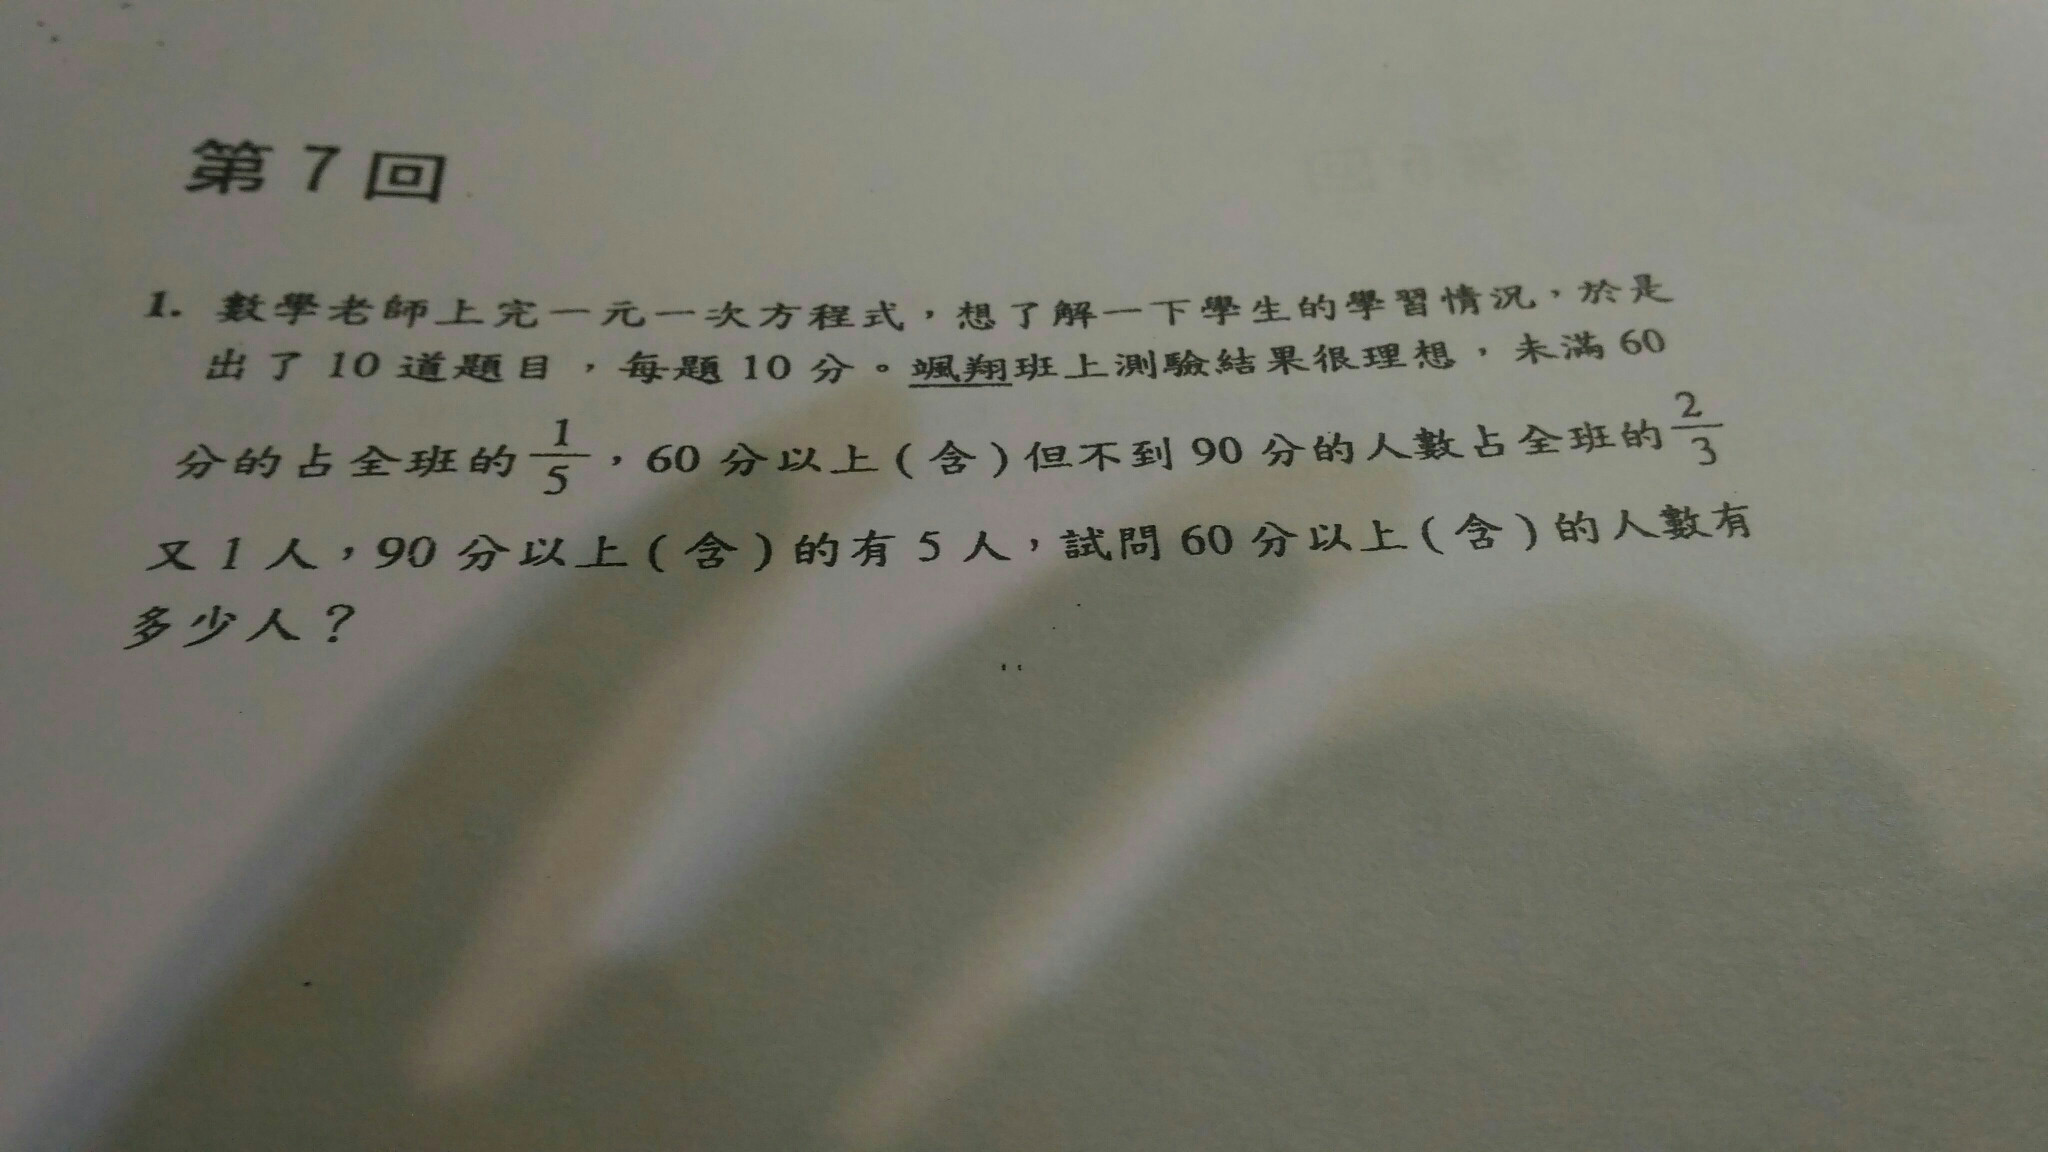 第7回
1. 數學老師上完一元一次方程式，想了解一下學生的學習情況，於是
出了10道題目，每題10分。颯翔班上測驗結果很理想，未滿60
分的占全班的1/5，60分以上(含)但不到90分的人數占全班的2/3
又1人，90分以上(含)的有5人，試問60分以上(含)的人數有
多少人？